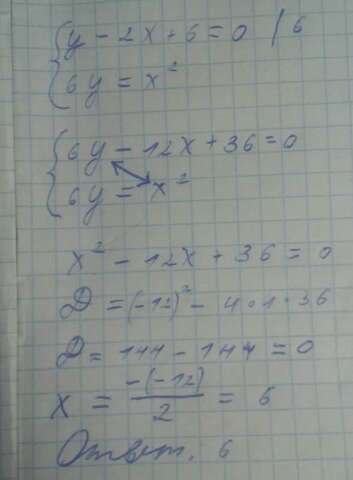 y - 2x + 6 = 0 / 6
6y = x²
6y - 12x + 36 = 0
6y = x²
x² - 12x + 36 = 0
D = (-12)² - 4·1·36
D = 144 - 144 = 0
x = -(-12)/2 = 6
Ответ. 6